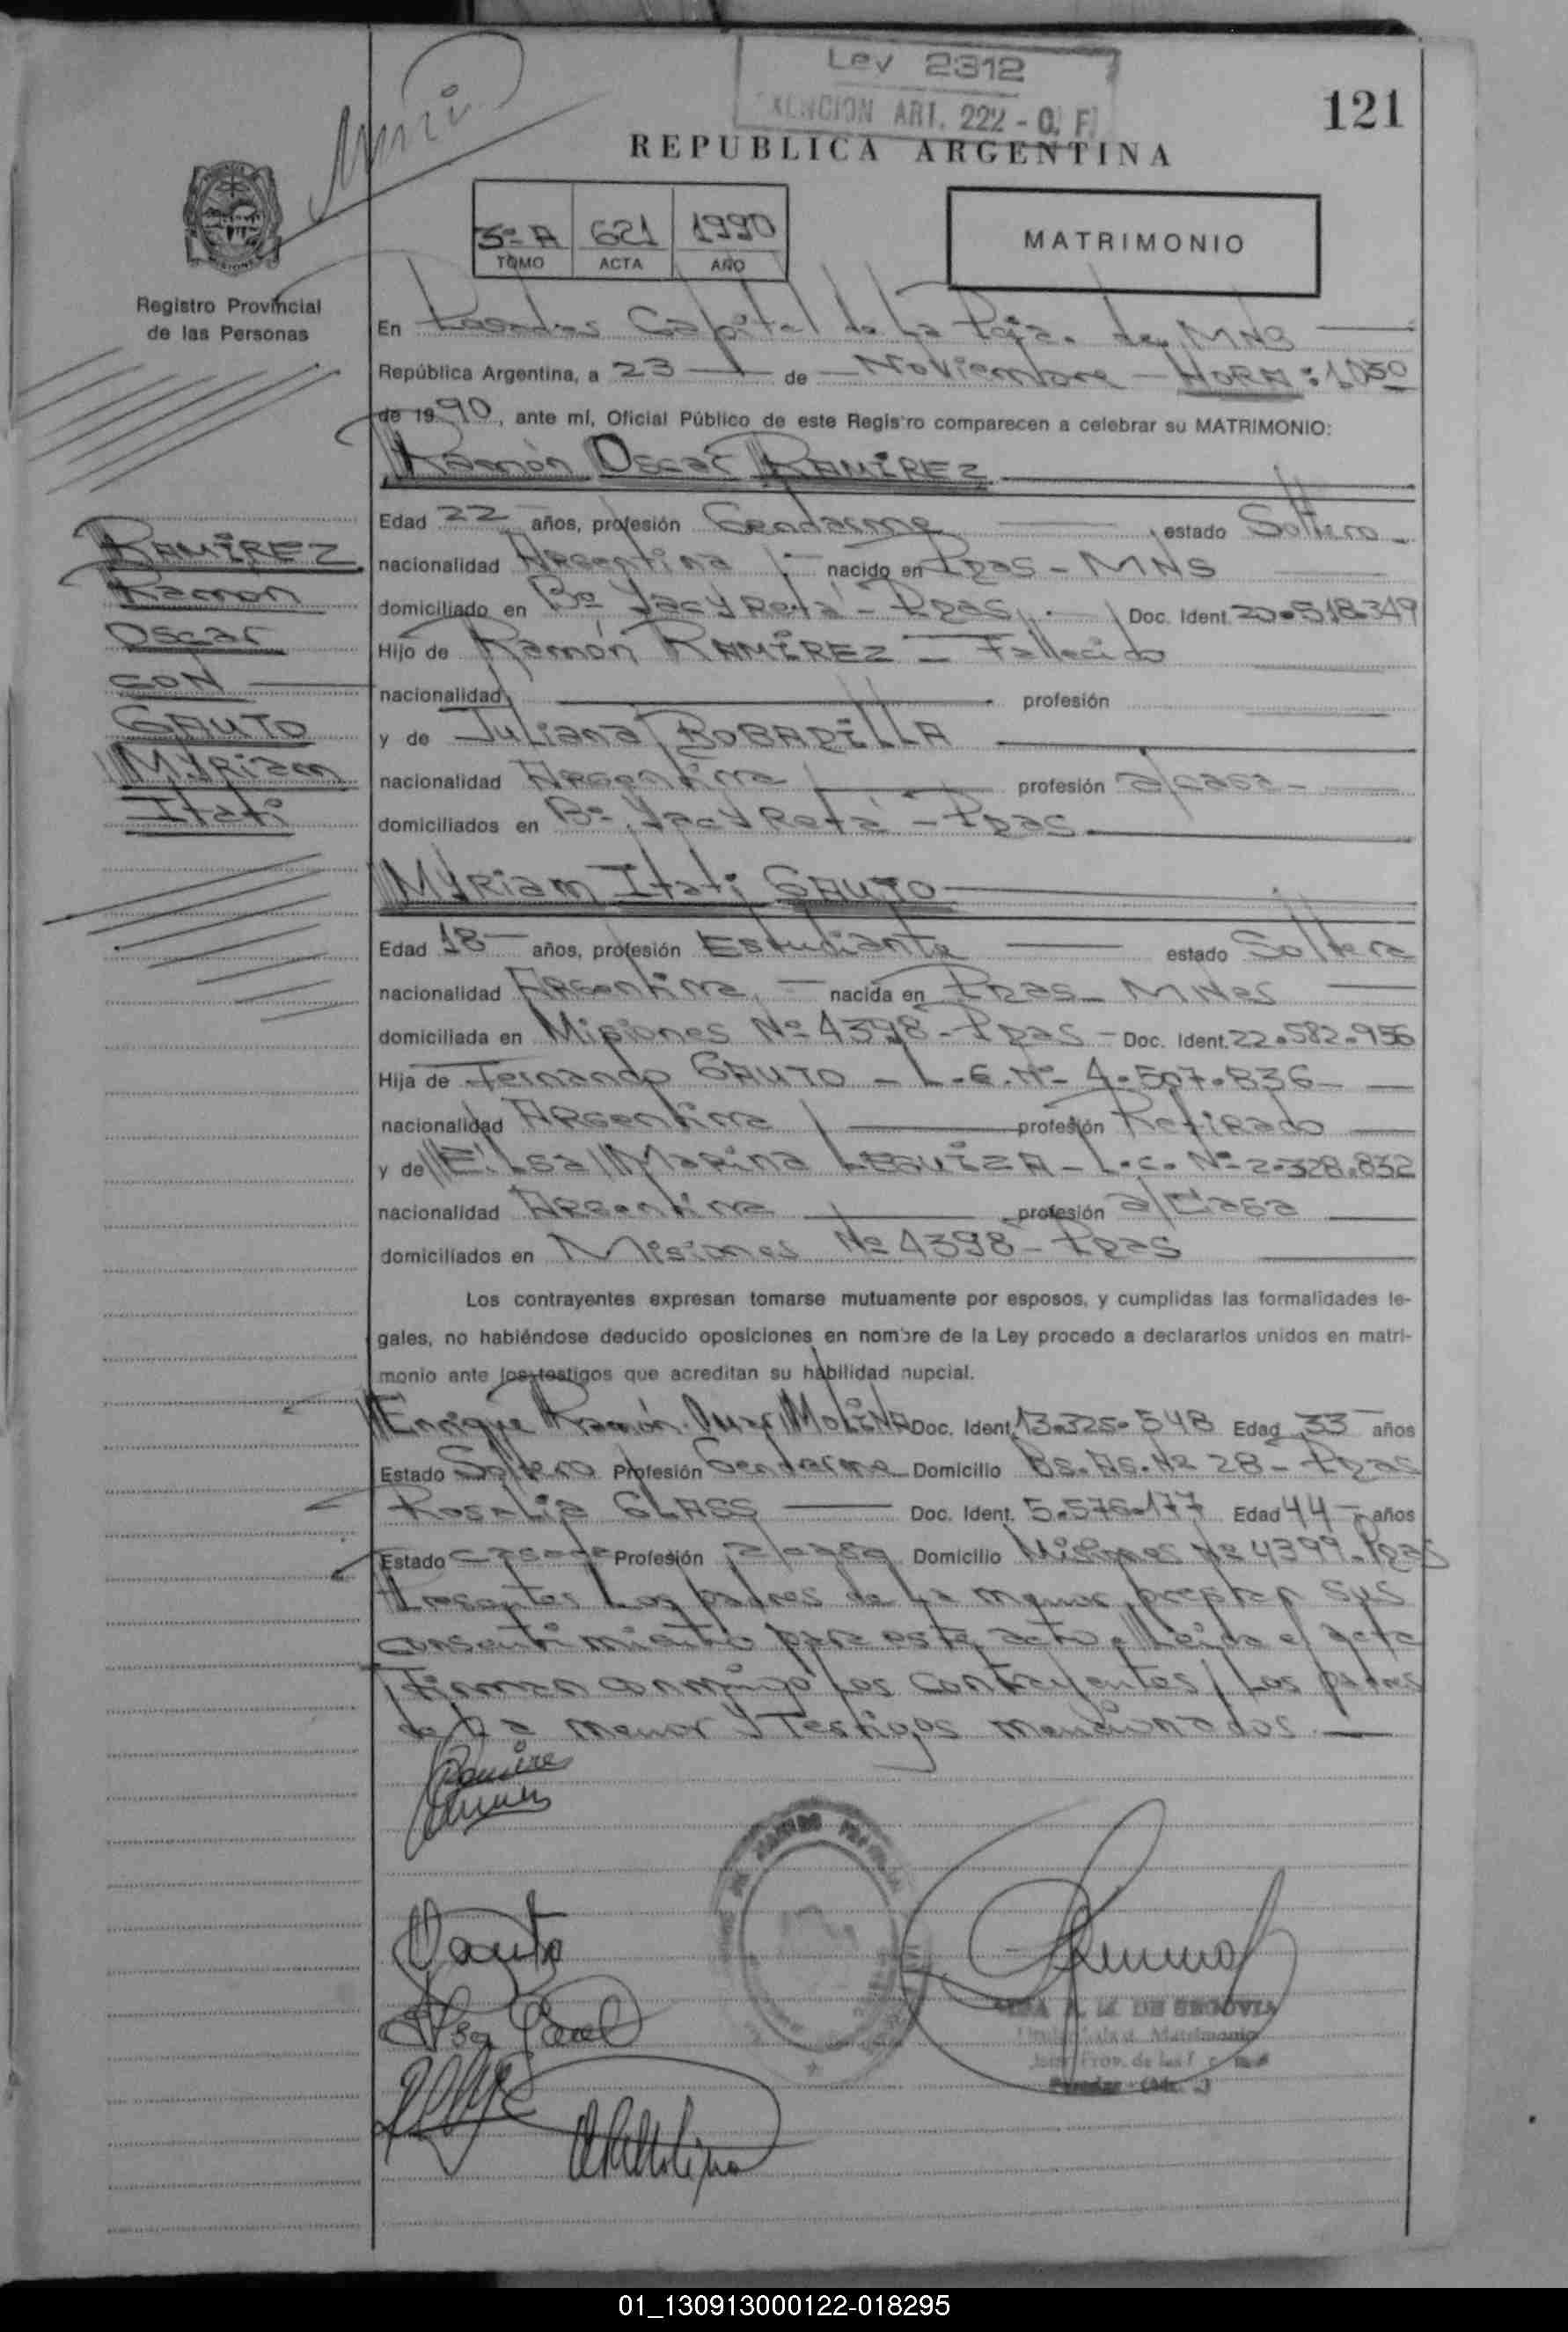 Ley 2312
EXENCION ART. 222 - C. F.
121
REPUBLICA ARGENTINA
3º A 621 1990
TOMO ACTA AÑO
MATRIMONIO
Registro Provincial
de las Personas
En Posadas Capital de la Pcia. de MNS
República Argentina, a 23 de Noviembre - HORA: 10:30
de 1990, ante mí, Oficial Público de este Registro comparecen a celebrar su MATRIMONIO:
Ramón Oscar RAMIREZ
Edad 22 años, profesión Gendarme estado Soltero
nacionalidad Argentina nacido en Pdas - MNS
domiciliado en Bº Yacyretá - Pdas. Doc. Ident. 20.518.349
Hijo de Ramón RAMIREZ - Fallecido
nacionalidad profesión
y de Juliana BOBADILLA
nacionalidad Argentina profesión a/casa
domiciliados en Bº Yacyretá - Pdas.
RAMIREZ
Ramón
Oscar
CON
GAUTO
Myriam
Itatí
Myriam Itatí GAUTO
Edad 18 años, profesión Estudiante estado Soltera
nacionalidad Argentina nacida en Pdas - MNes
domiciliada en Misiones Nº 4398 - Pdas - Doc. Ident. 22.582.956
Hija de Fernando GAUTO - L.E. Nº 4.507.836
nacionalidad Argentina profesión Retirado
y de Elsa Marina LEGUIZA - L.C. Nº 2.328.832
nacionalidad Argentina profesión a/Casa
domiciliados en Misiones Nº 4398 - Pdas
Los contrayentes expresan tomarse mutuamente por esposos, y cumplidas las formalidades le-
gales, no habiéndose deducido oposiciones en nombre de la Ley procedo a declararlos unidos en matri-
monio ante los testigos que acreditan su habilidad nupcial.
Enrique Ramón MOLINA Doc. Ident. 13.325.548 Edad 33 años
Estado Soltero Profesión Gendarme Domicilio Bs. As. Nº 28 - Pdas
Rosalia GLASS Doc. Ident. 5.576.177 Edad 44 años
Estado casada Profesión a/casa Domicilio Misiones Nº 4399 - Pdas
Presentes los padres de la menor prestan sus
consentimiento para este acto. Leida el acta
Firman conmigo los contrayentes, los padres
de la menor y Testigos mencionados.
Gauto
Molina
A. M. DE SEGOVIA
01_130913000122-018295